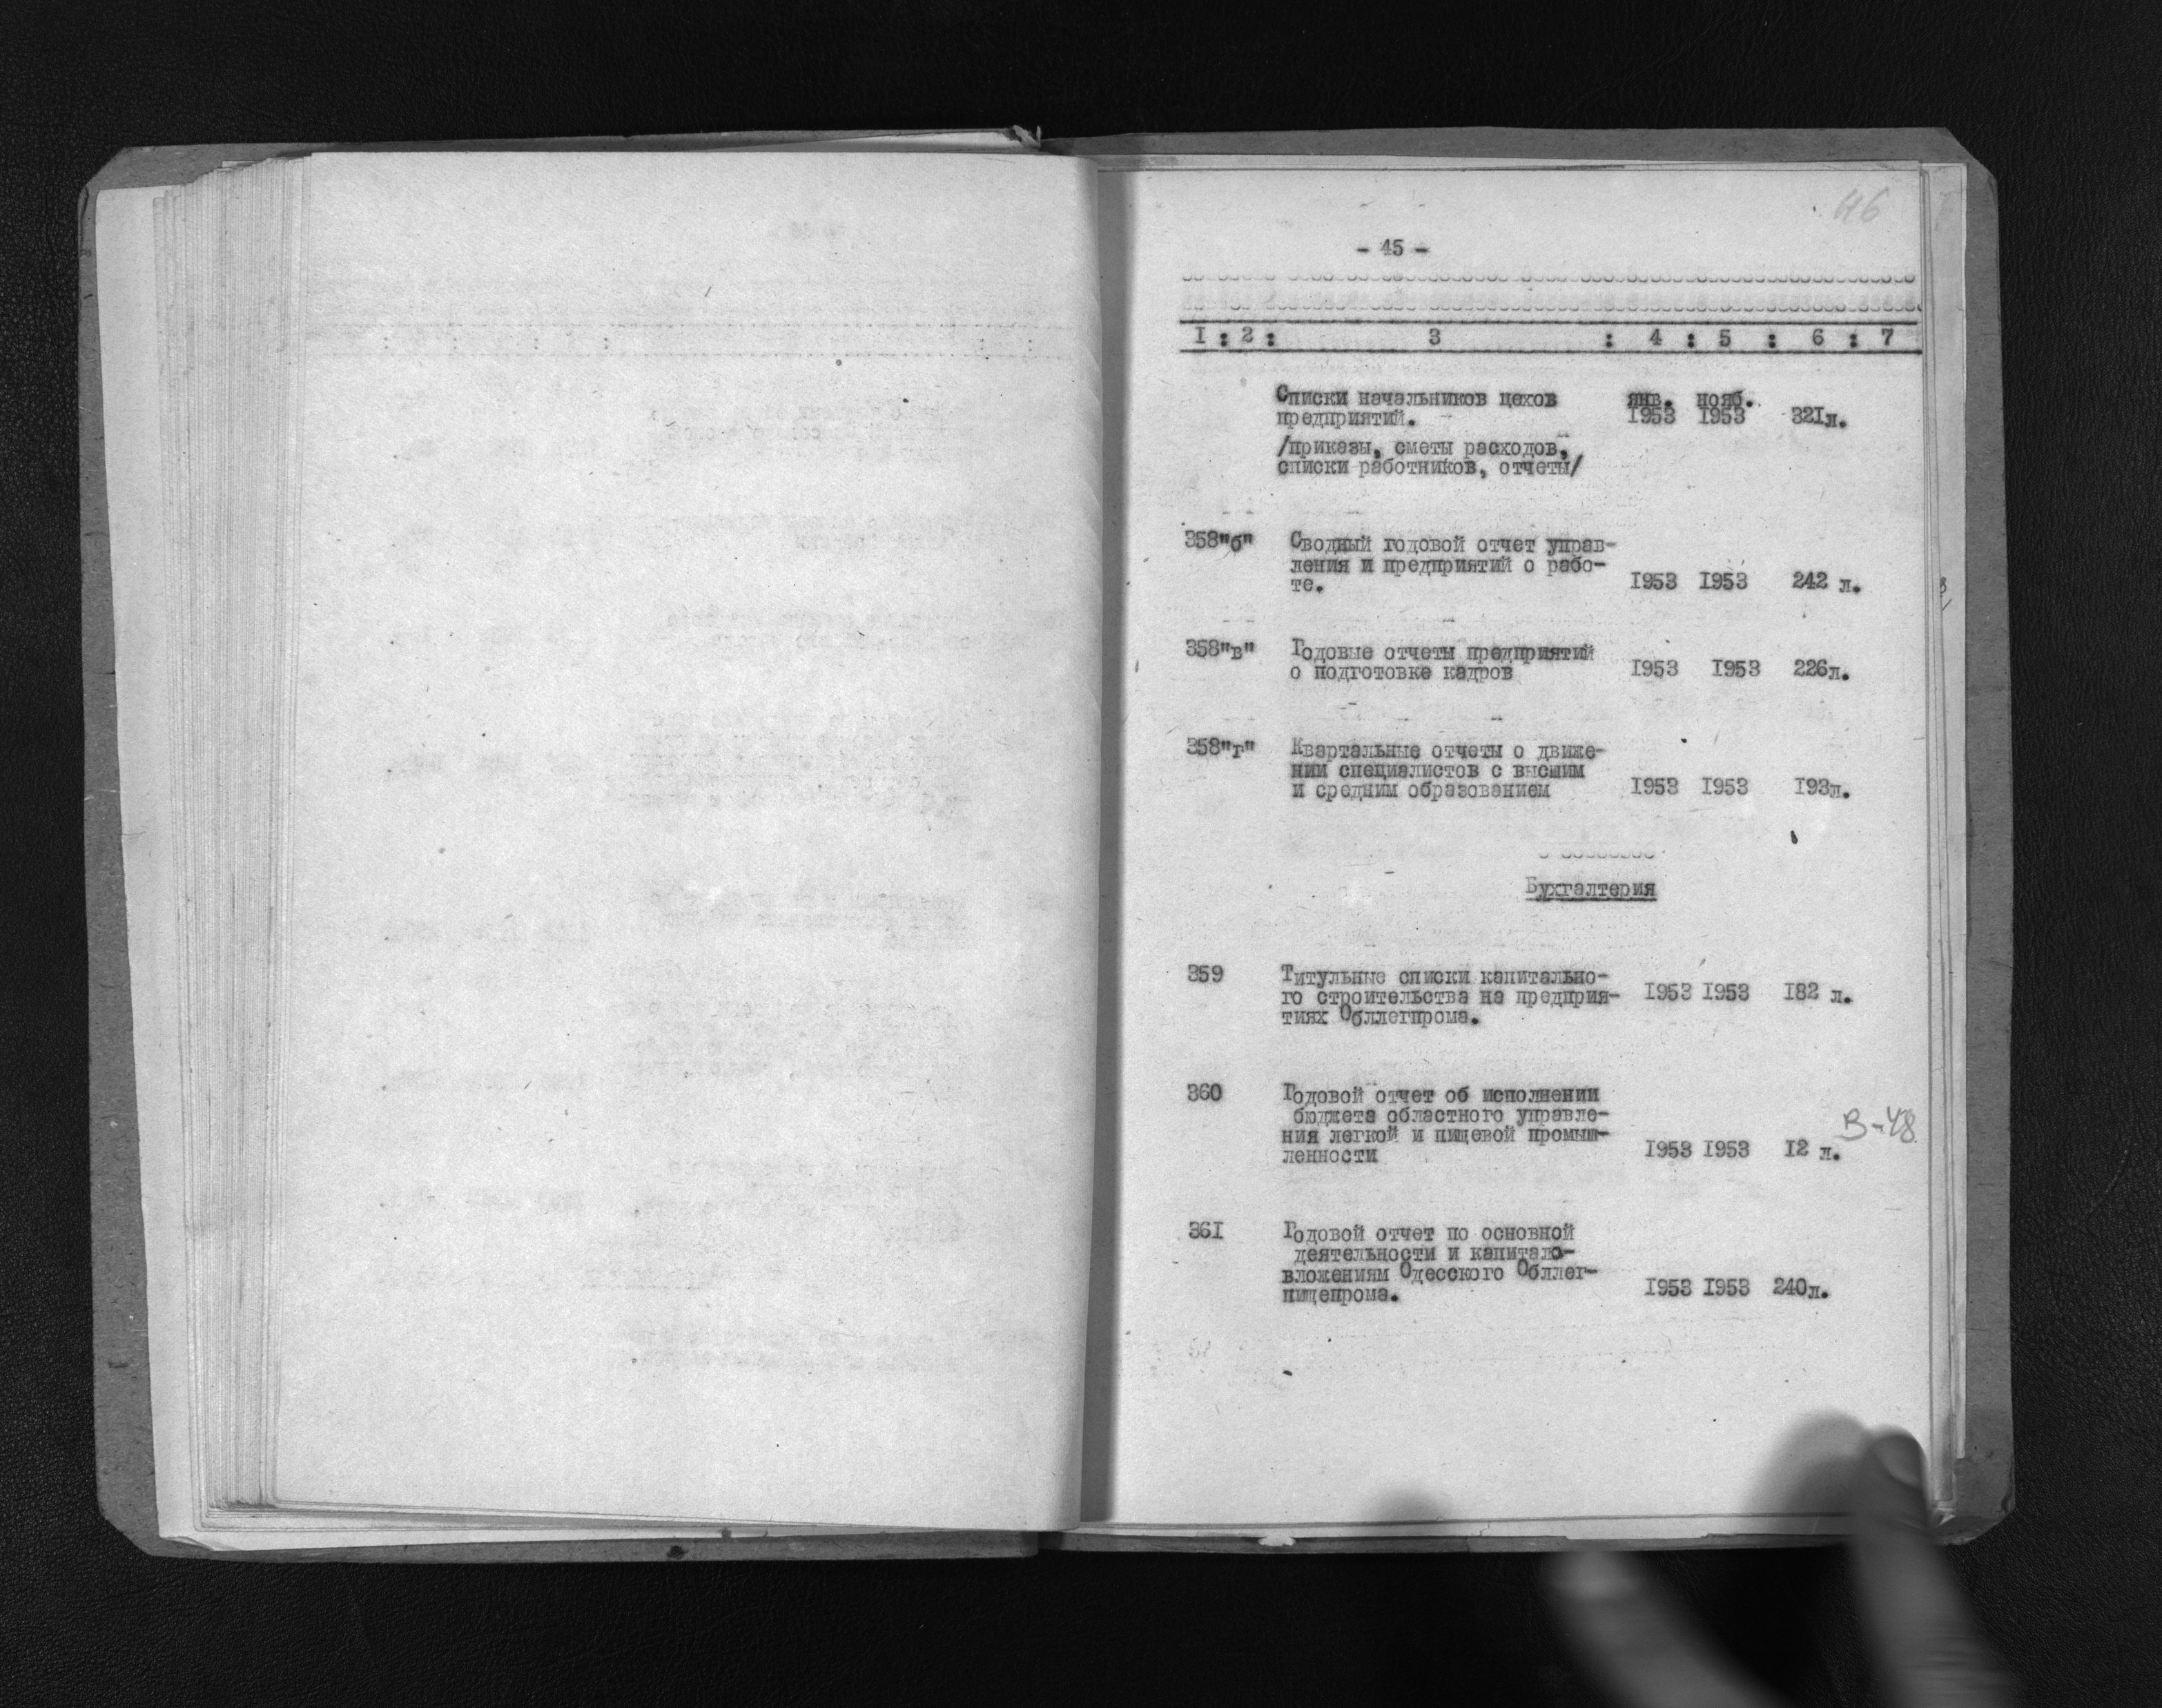 46
- 45 -
I : 2 : 3 : 4 : 5 : 6 : 7
Списки начальников цехов янв. нояб.
предприятий. 1953 1953 321л.
/приказы, сметы расходов,
списки работников, отчеты/
358"б" Сводный годовой отчет управ-
ления и предприятий о рабо-
те. 1953 1953 242 л.
358"в" Годовые отчеты предприятий
о подготовке кадров 1953 1953 226л.
358"г" Квартальные отчеты о движе-
нии специалистов с высшим
и средним образованием 1953 1953 193л.
Бухгалтерия
359 Титульные списки капитально-
го строительства на предприя- 1953 1953 182 л.
тиях Обллегпрома.
360 Годовой отчет об исполнении
бюджета областного управле-
ния легкой и пищевой промыш- В-48
ленности 1953 1953 12 л.
361 Годовой отчет по основной
деятельности и капитало-
вложениям Одесского Обллег-
пищепрома. 1953 1953 240л.